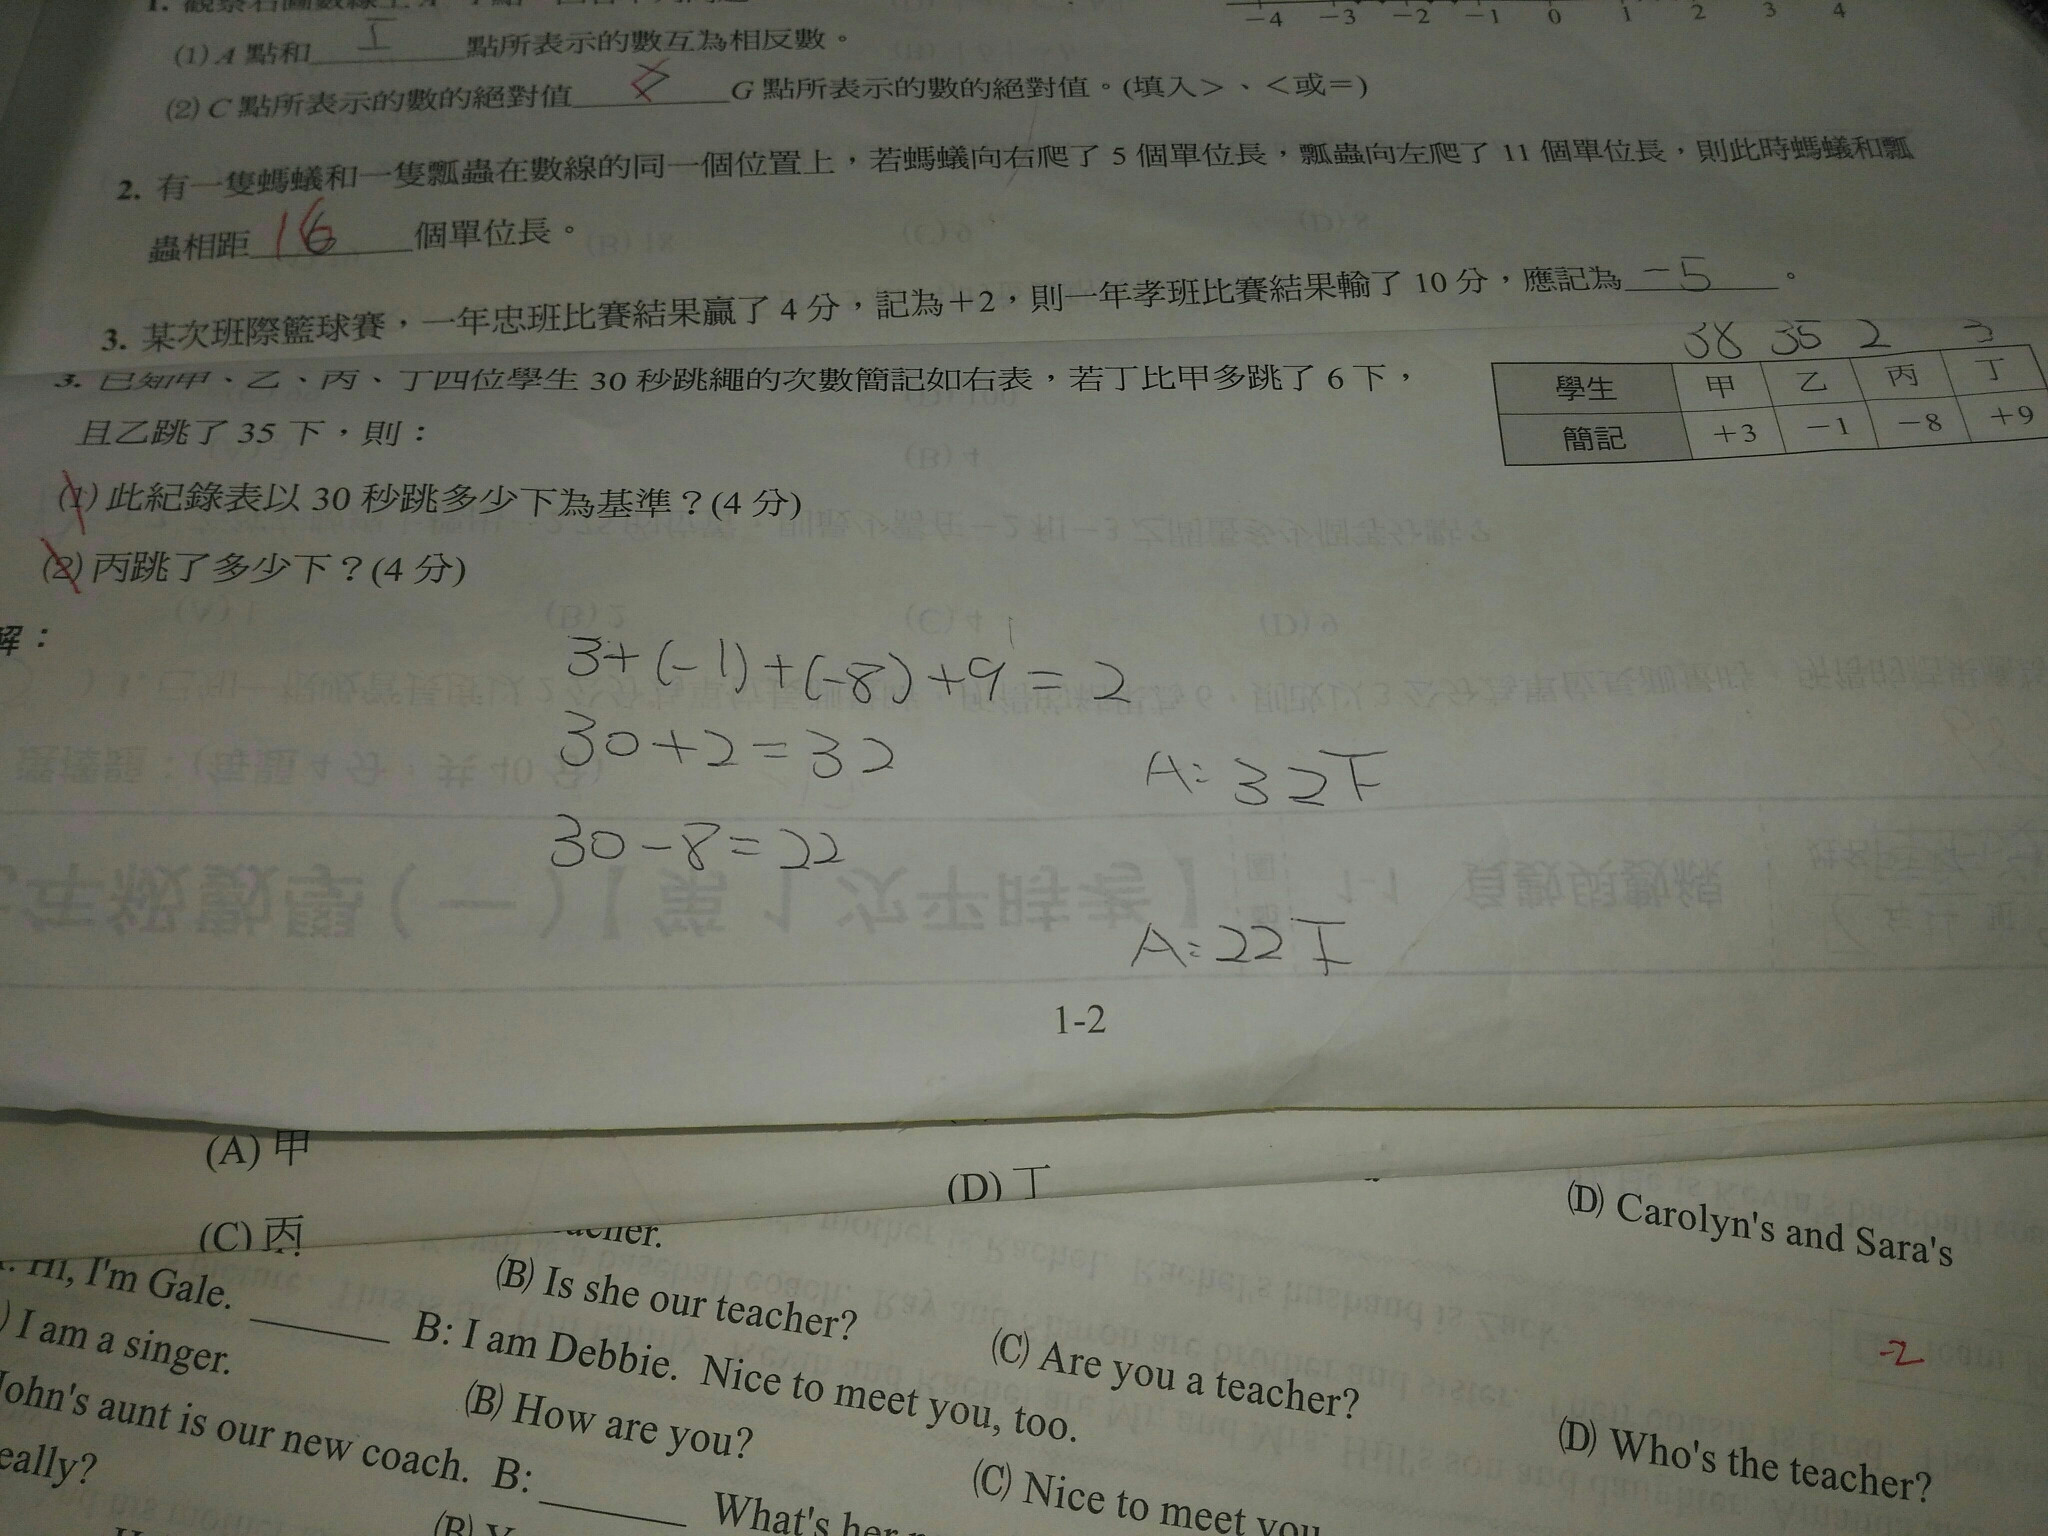 (1) A 點和 工 點所表示的數互為相反數。
-4 -3 -2 -1 0 1 2 3 4
(2) C 點所表示的數的絕對值 G 點所表示的數的絕對值。(填入>、<或=)
2. 有一隻螞蟻和一隻瓢蟲在數線的同一個位置上，若螞蟻向右爬了 5 個單位長，瓢蟲向左爬了 11 個單位長，則此時螞蟻和瓢
蟲相距 16 個單位長。
3. 某次班際籃球賽，一年忠班比賽結果贏了 4 分，記為+2，則一年孝班比賽結果輸了 10 分，應記為 -5 。
38 35 2 3
3. 已知甲、乙、丙、丁四位學生 30 秒跳繩的次數簡記如右表，若丁比甲多跳了 6 下，
學生 甲 乙 丙 丁
且乙跳了 35 下，則：
簡記 +3 -1 -8 +9
(1) 此紀錄表以 30 秒跳多少下為基準？(4 分)
(2) 丙跳了多少下？(4 分)
解：
3+(-1)+(-8)+9=2
30+2=32
A: 32下
30-8=22
A: 22下
1-2
(A) 甲
(D) 丁
(C) 丙
(D) Carolyn's and Sara's
Hi, I'm Gale. B: I am Debbie. Nice to meet you, too.
(B) Is she our teacher?
(C) Are you a teacher?
-2
(D) Who's the teacher?
I am a singer.
(B) How are you?
(C) Nice to meet you
John's aunt is our new coach. B: What's her